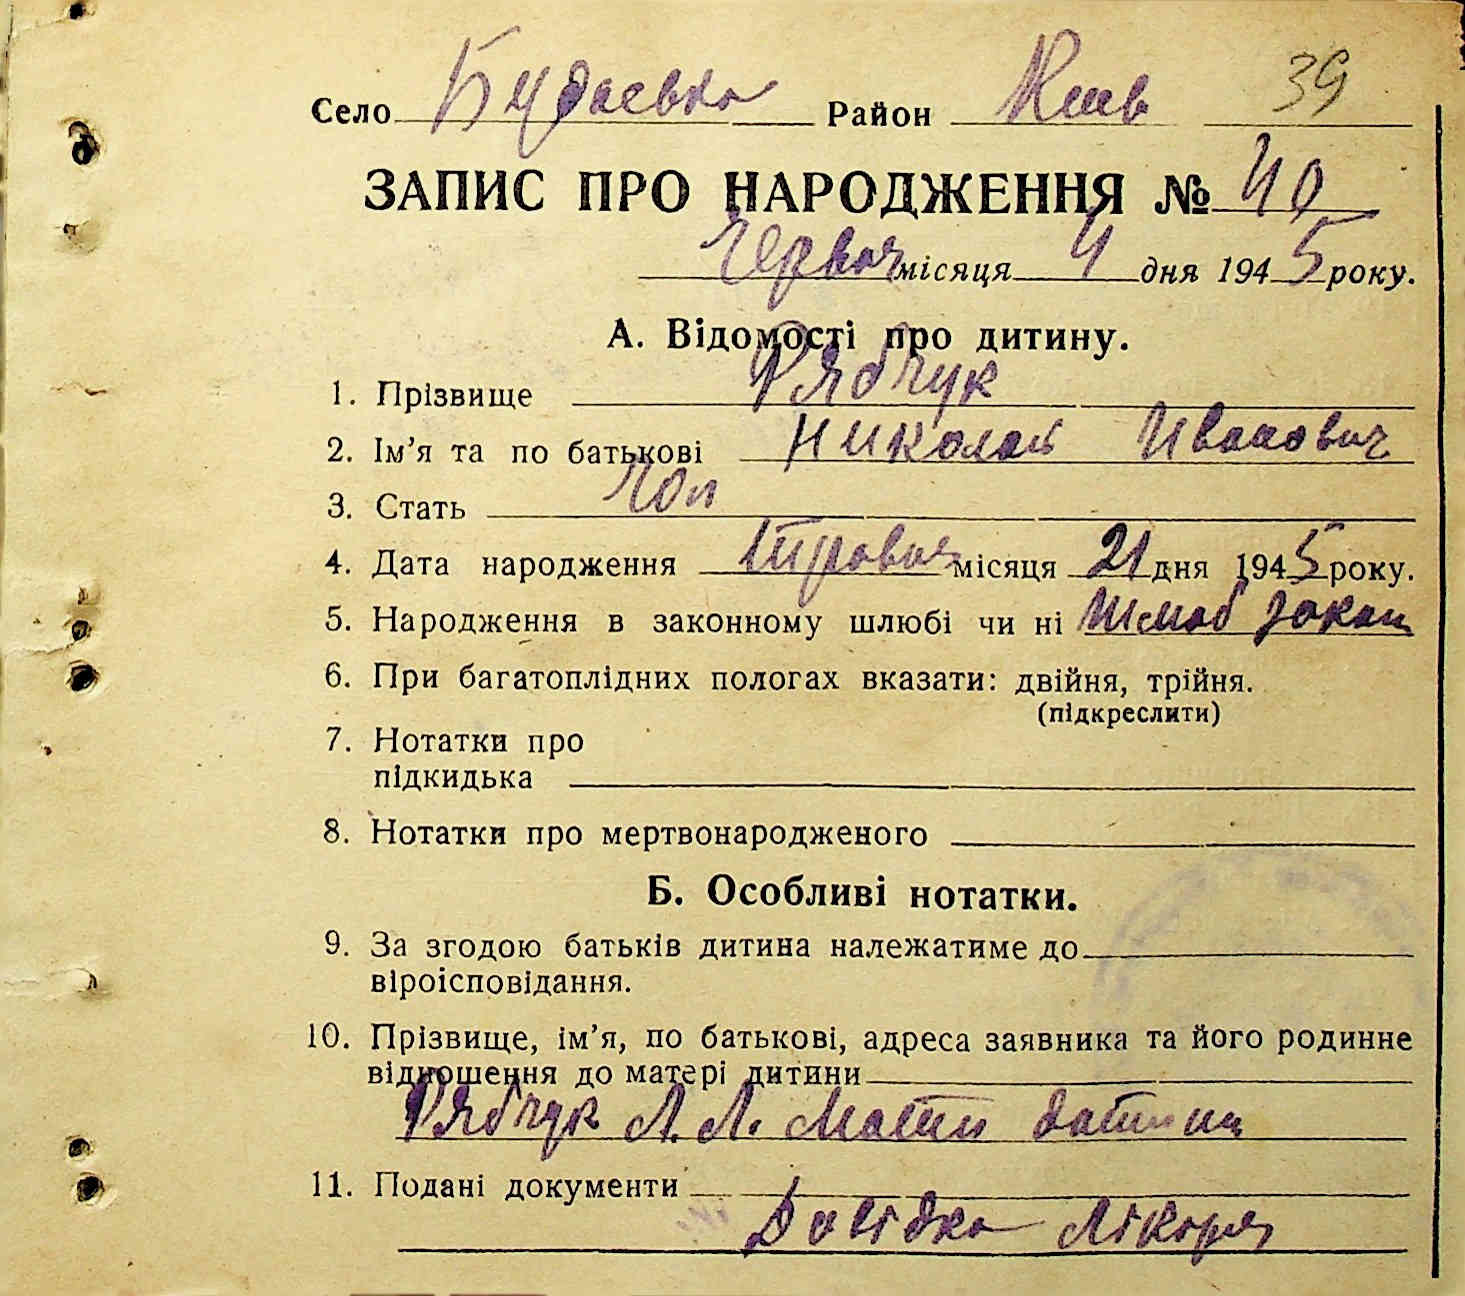 Село Будаевка Район Киев 39
ЗАПИС ПРО НАРОДЖЕННЯ № 40
Червня місяця 4 дня 1945 року.
А. Відомості про дитину.
1. Прізвище Рябчук
2. Ім'я та по батькові Николай Иванович
3. Стать Чол
4. Дата народження Травня місяця 21 дня 1945 року.
5. Народження в законному шлюбі чи ні
6. При багатоплідних пологах вказати: двійня, трійня.
(підкреслити)
7. Нотатки про
підкидька
8. Нотатки про мертвонародженого
Б. Особливі нотатки.
9. За згодою батьків дитина належатиме до
віроісповідання.
10. Прізвище, ім'я, по батькові, адреса заявника та його родинне
відношення до матері дитини
Рябчук Л. Л. Мати
11. Подані документи
Довідка Лікаря